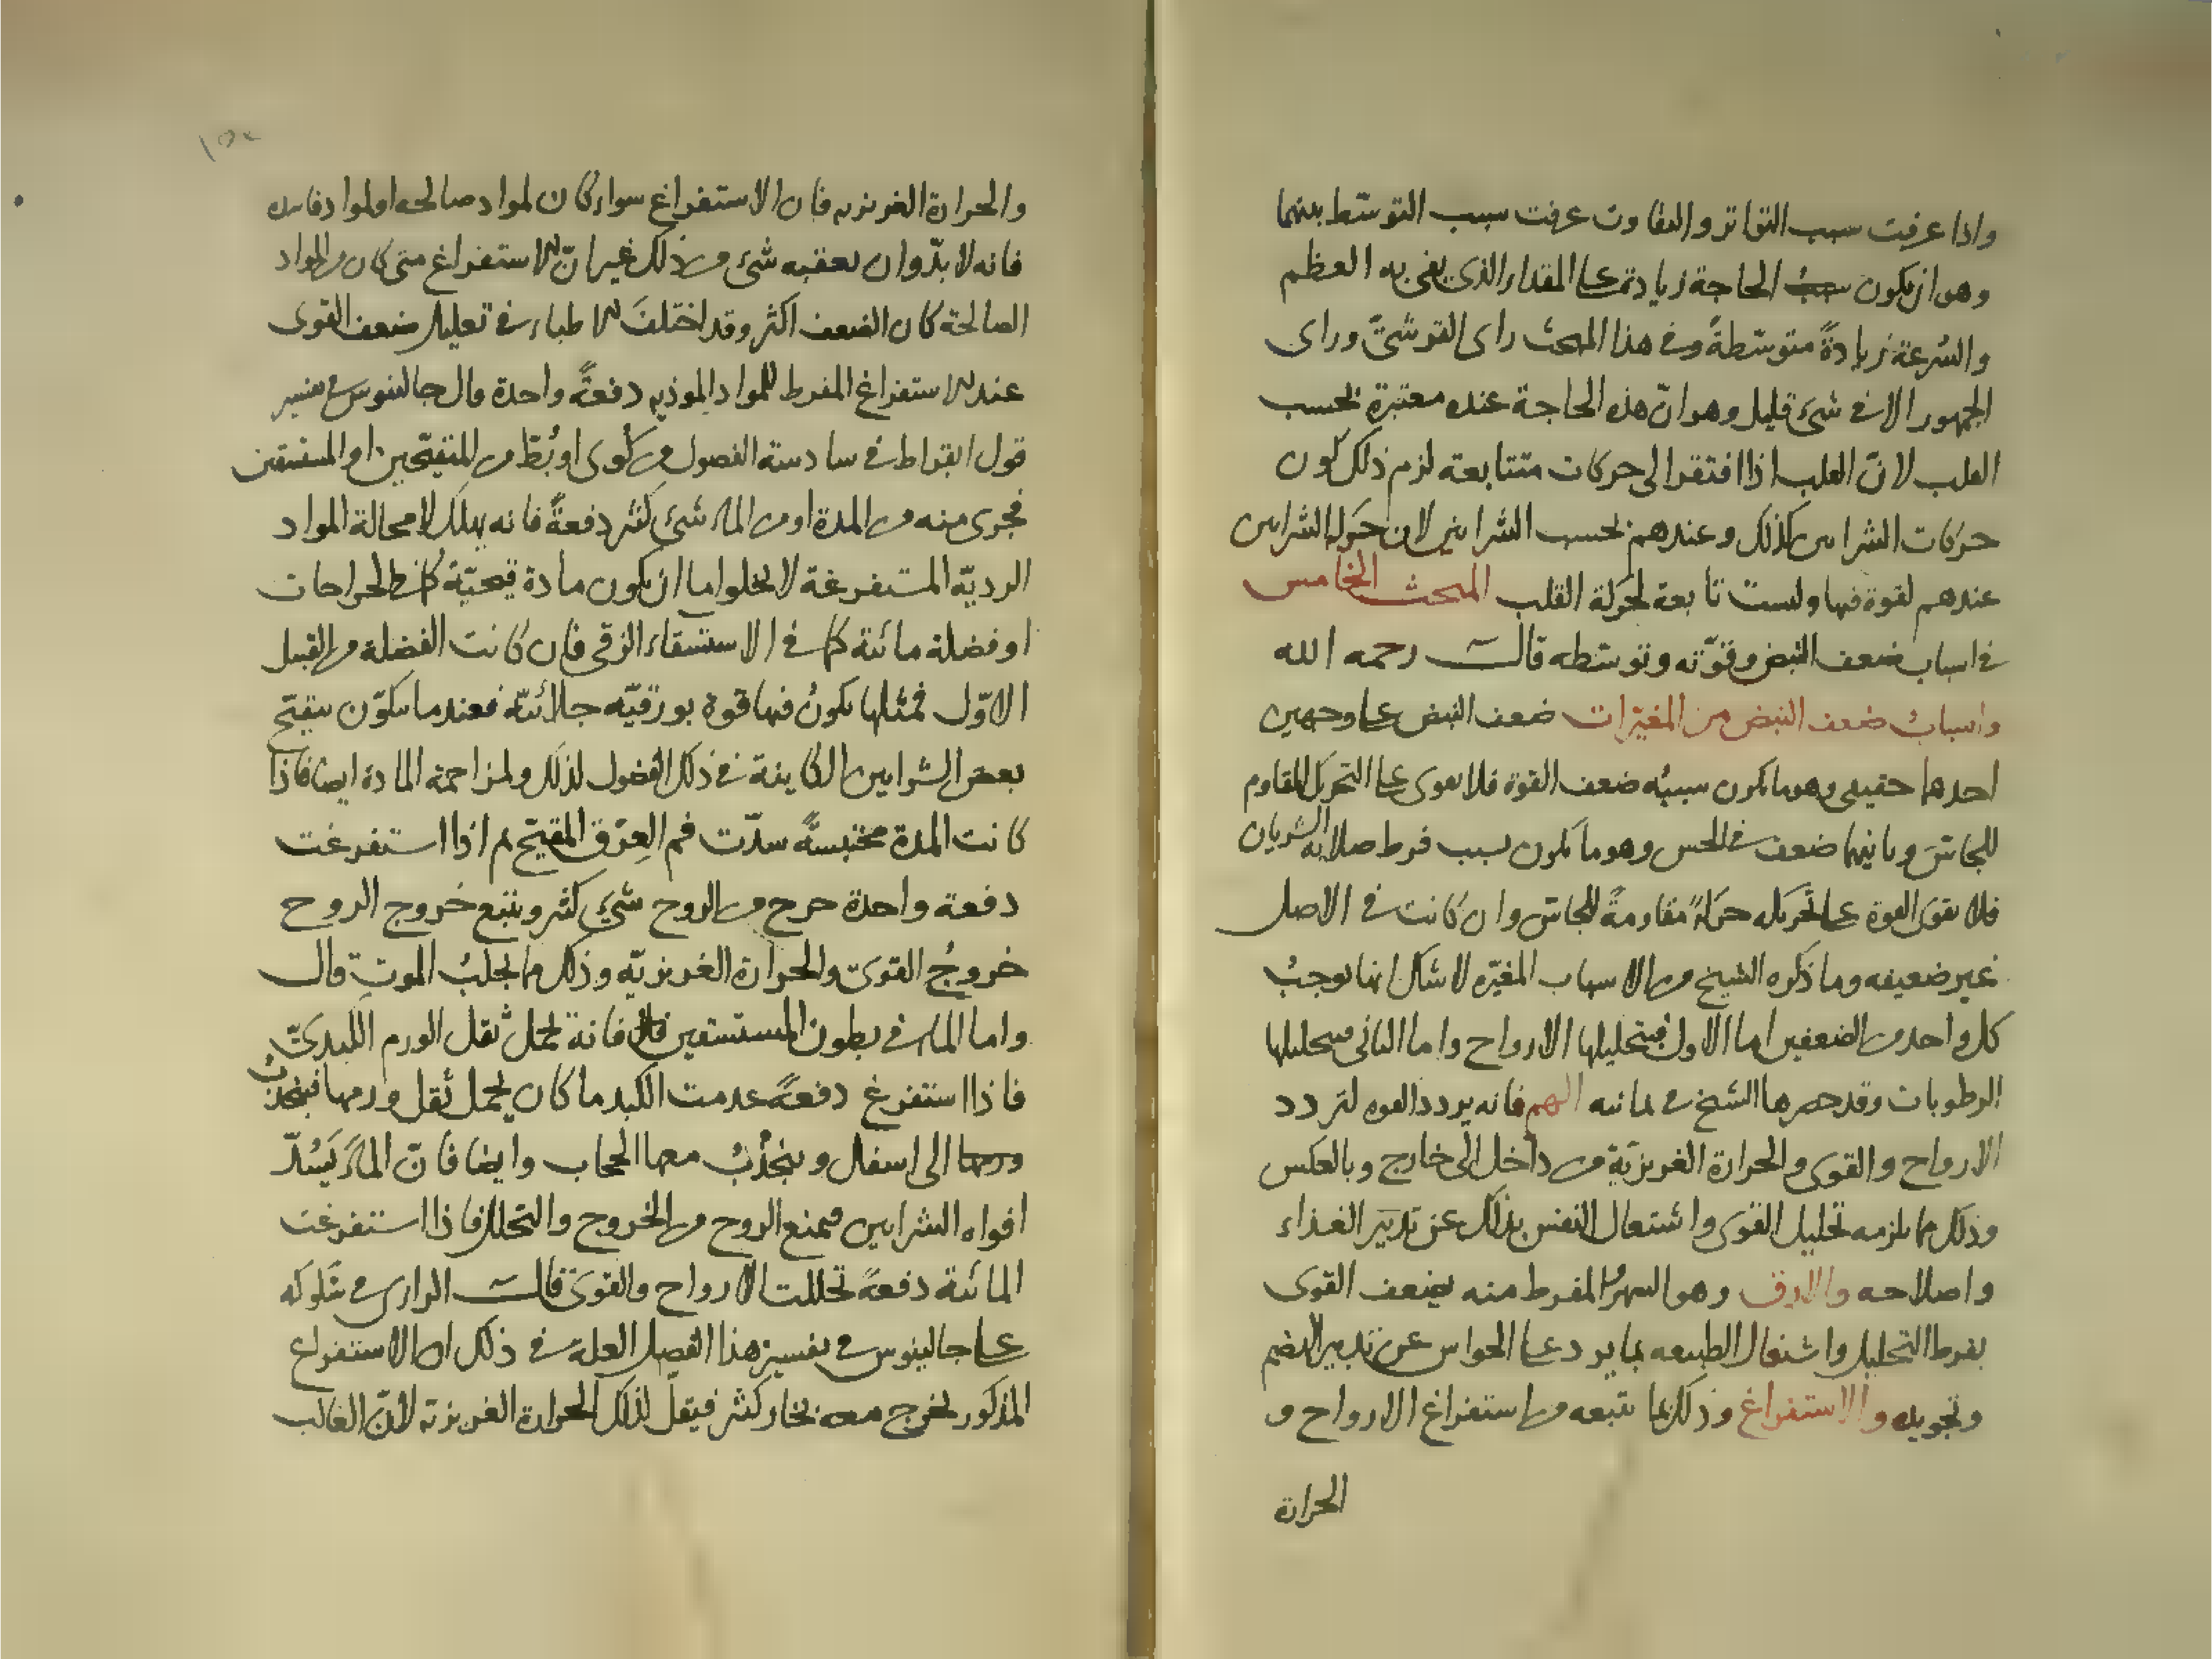 واذا عرفت سبب التواتر والتفاوت عرفت سبب التوسّط بينهما
وهو ان يكون الحاجة زيادتها على المقدار الذى يفى به العظم
والسُرعة زيادةً متوسّطةً وفى هذا المبحث راى القرشىّ وراى
الجمهور الا فى شئ قليل وهو انّ هذه الحاجة عنده معتبرة بحسب
القلب لانّ القلب اذا افتقر الى حركات متتابعة لزم ذلك كون
حركات الشرايين كذلك وعندهم بحسب الشرايين لان حركة الشرايين
عندهم لقوة فيها وليست تابعة لحركة القلب المبحث الخامس
فى اسباب ضعف النبض وقوّته وتوسّطه قال رحمه الله
واسباب ضعف النبض من المغيّرات ضعف النبض على وجهين
احدهما حقيقى وهو ما يكون سببُه ضعف القوة فلا تقوى على التحريك المقاوم
للجاسّ وثانيهما ضعف فى الحس وهو ما يكون بسبب فرط صلابة الشريان
فلا تقوى القوة على تحريكه حركةً مقاومةً للجاسّ وان كانت فى الاصل
غير ضعيفه وما ذكره الشيخ من الاسباب المغيّره لا شك انها توجبُ
كل واحد من الضعفين اما الاول فبتحليلها الارواح واما الثانى فبتحليلها
الرطوبات وقد حصرها الشيخ فى ثمانيه الهم فانه يردد القوه لتردد
الارواح والقوى والحرارة الغريزيّة من داخل الى خارج وبالعكس
وذلك مما يلزمه تحليل القوى واشتغال النفس بذلك عن تدبير الغذاء
واصلاحه والارق وهو السهرُ المفرط منه يضعف القوى
بفرط التحليل واشتغال الطبيعه بما يرد على الحواس عن تدبير الهضم
وتجويده والاستفراغ وذلك لما يتبعه من استفراغ الارواح و
الحرارة
١٥٢
والحرارة الغريزيه فان الاستفراغ سواء كان لمواد صالحه او لمواد فاسده
فانه لا بدّ وان يعقبه شئ من ذلك غير انّ الاستفراغ متى كان من المواد
الصالحة كان الضعف اكثر وقد اختلفَ الاطباء فى تعليل ضعف القوى
عند الاستفراغ المفرط للمواد الموذيه دفعةً واحدة قال جالينوس فى تفسير
قول ابقراط فى سادسة الفصول من كُوى او بُطّ من المتقيّحين او المستسقين
فجرى منه من المدة او من الماء شئ كثير دفعةً فانه يهلك لا محالة المواد
الرديّة المستفرغة لا يخلوا اما ان يكون مادة قيحيّة كما فى بط الجراحات
او فضلة مائية كما فى الاستسقاء الزقى فان كانت الفضلة من القبيل
الاوّل فمثلها يكونُ فيها قوة بورقيّه جلائيّة فعندما تتكوّن يتفتح
بعض الشرايين الكاينة فى ذلك الفضول لذلك ولمزاحمة المادة ايضا فاذا
كانت المدة محتبسةً سدّت فم العِرق المفتّح ثم اذا استفرغت
دفعة واحدة خرج من الروح شئ كثير ويتبع خروج الروح
خروجُ القوى والحرارة الغريزيّه وذلك مما يجلبُ الموت قال
واما الماء فى بطون المستسقين فانه يحمل ثقل الورم الكبدىّ
فاذا استفرغ دفعةً عدمت الكبد ما كان يحمل ثقل ورمها فينجذب
الى اسفل وينجذُب معها الحجاب وايضا فانّ الماءَ يَسُدّ
افواه الشرايين فيمنع الروح من الخروج والتحلل فاذا استفرغت
المائية دفعةً تحللت الارواح والقوى قال الرازى فى شكوكه
على جالينوس فى تفسيره هذا الفصل العلة فى ذلك ان الاستفراغ
المذكور يخرج معه بخار كثير فيقلّ لذلك الحرارة الغريزية لانّ الغالب